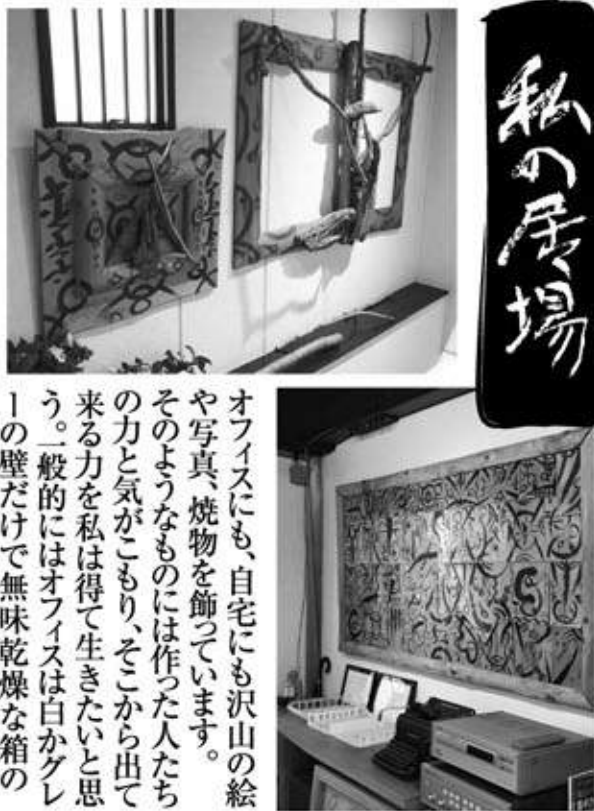 私の居場
オフィスにも、自宅にも沢山の絵
や写真、焼物を飾っています。
そのようなものには作った人たち
の力と気がこもり、そこから出て
来る力を私は得て生きたいと思
う。一般的にはオフィスは白かグレ
ーの壁だけで無味乾燥な箱の